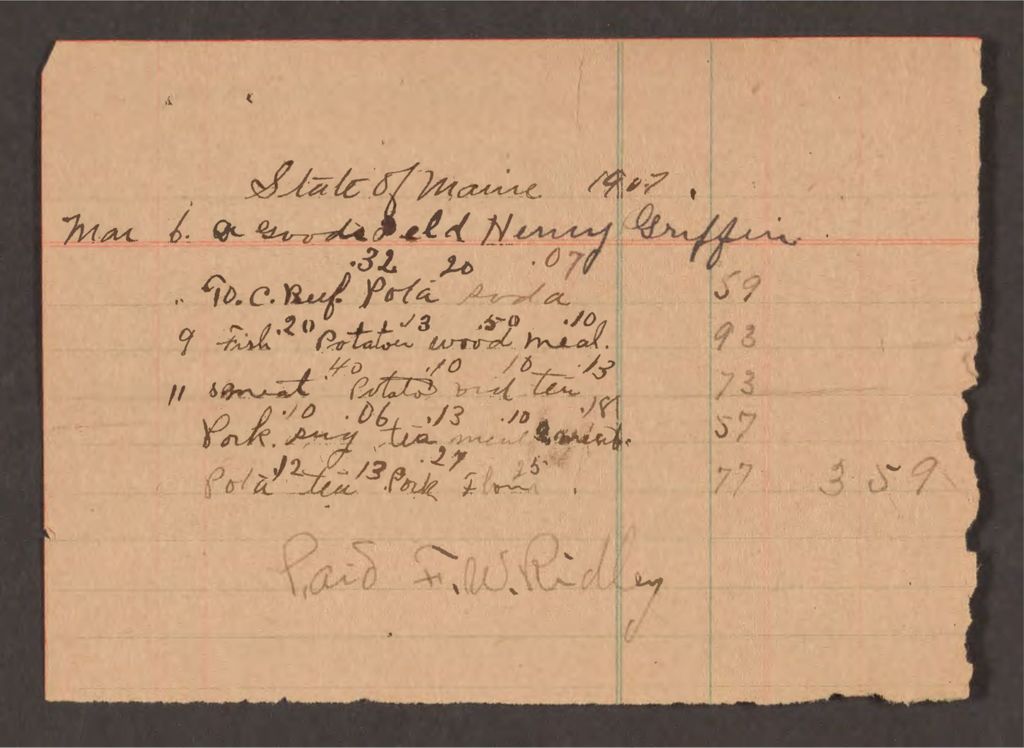 State of Maine 1907.
Mar 6. Goods Held Henry Griffin
.32 20 .07
" C. Beef. Pota soda 59
.20 .13 .50 .10
9 Fish Potatoes wood meal. 93
.40 .10 10 .13
11 smeat Potato tea 73
.10 .06 .13 .10 .18
Pork. sug tea meal meat. 57
.12 13 .27 25
Pota tea Pork Flour. 77 3 59
Paid F. W. Ridley